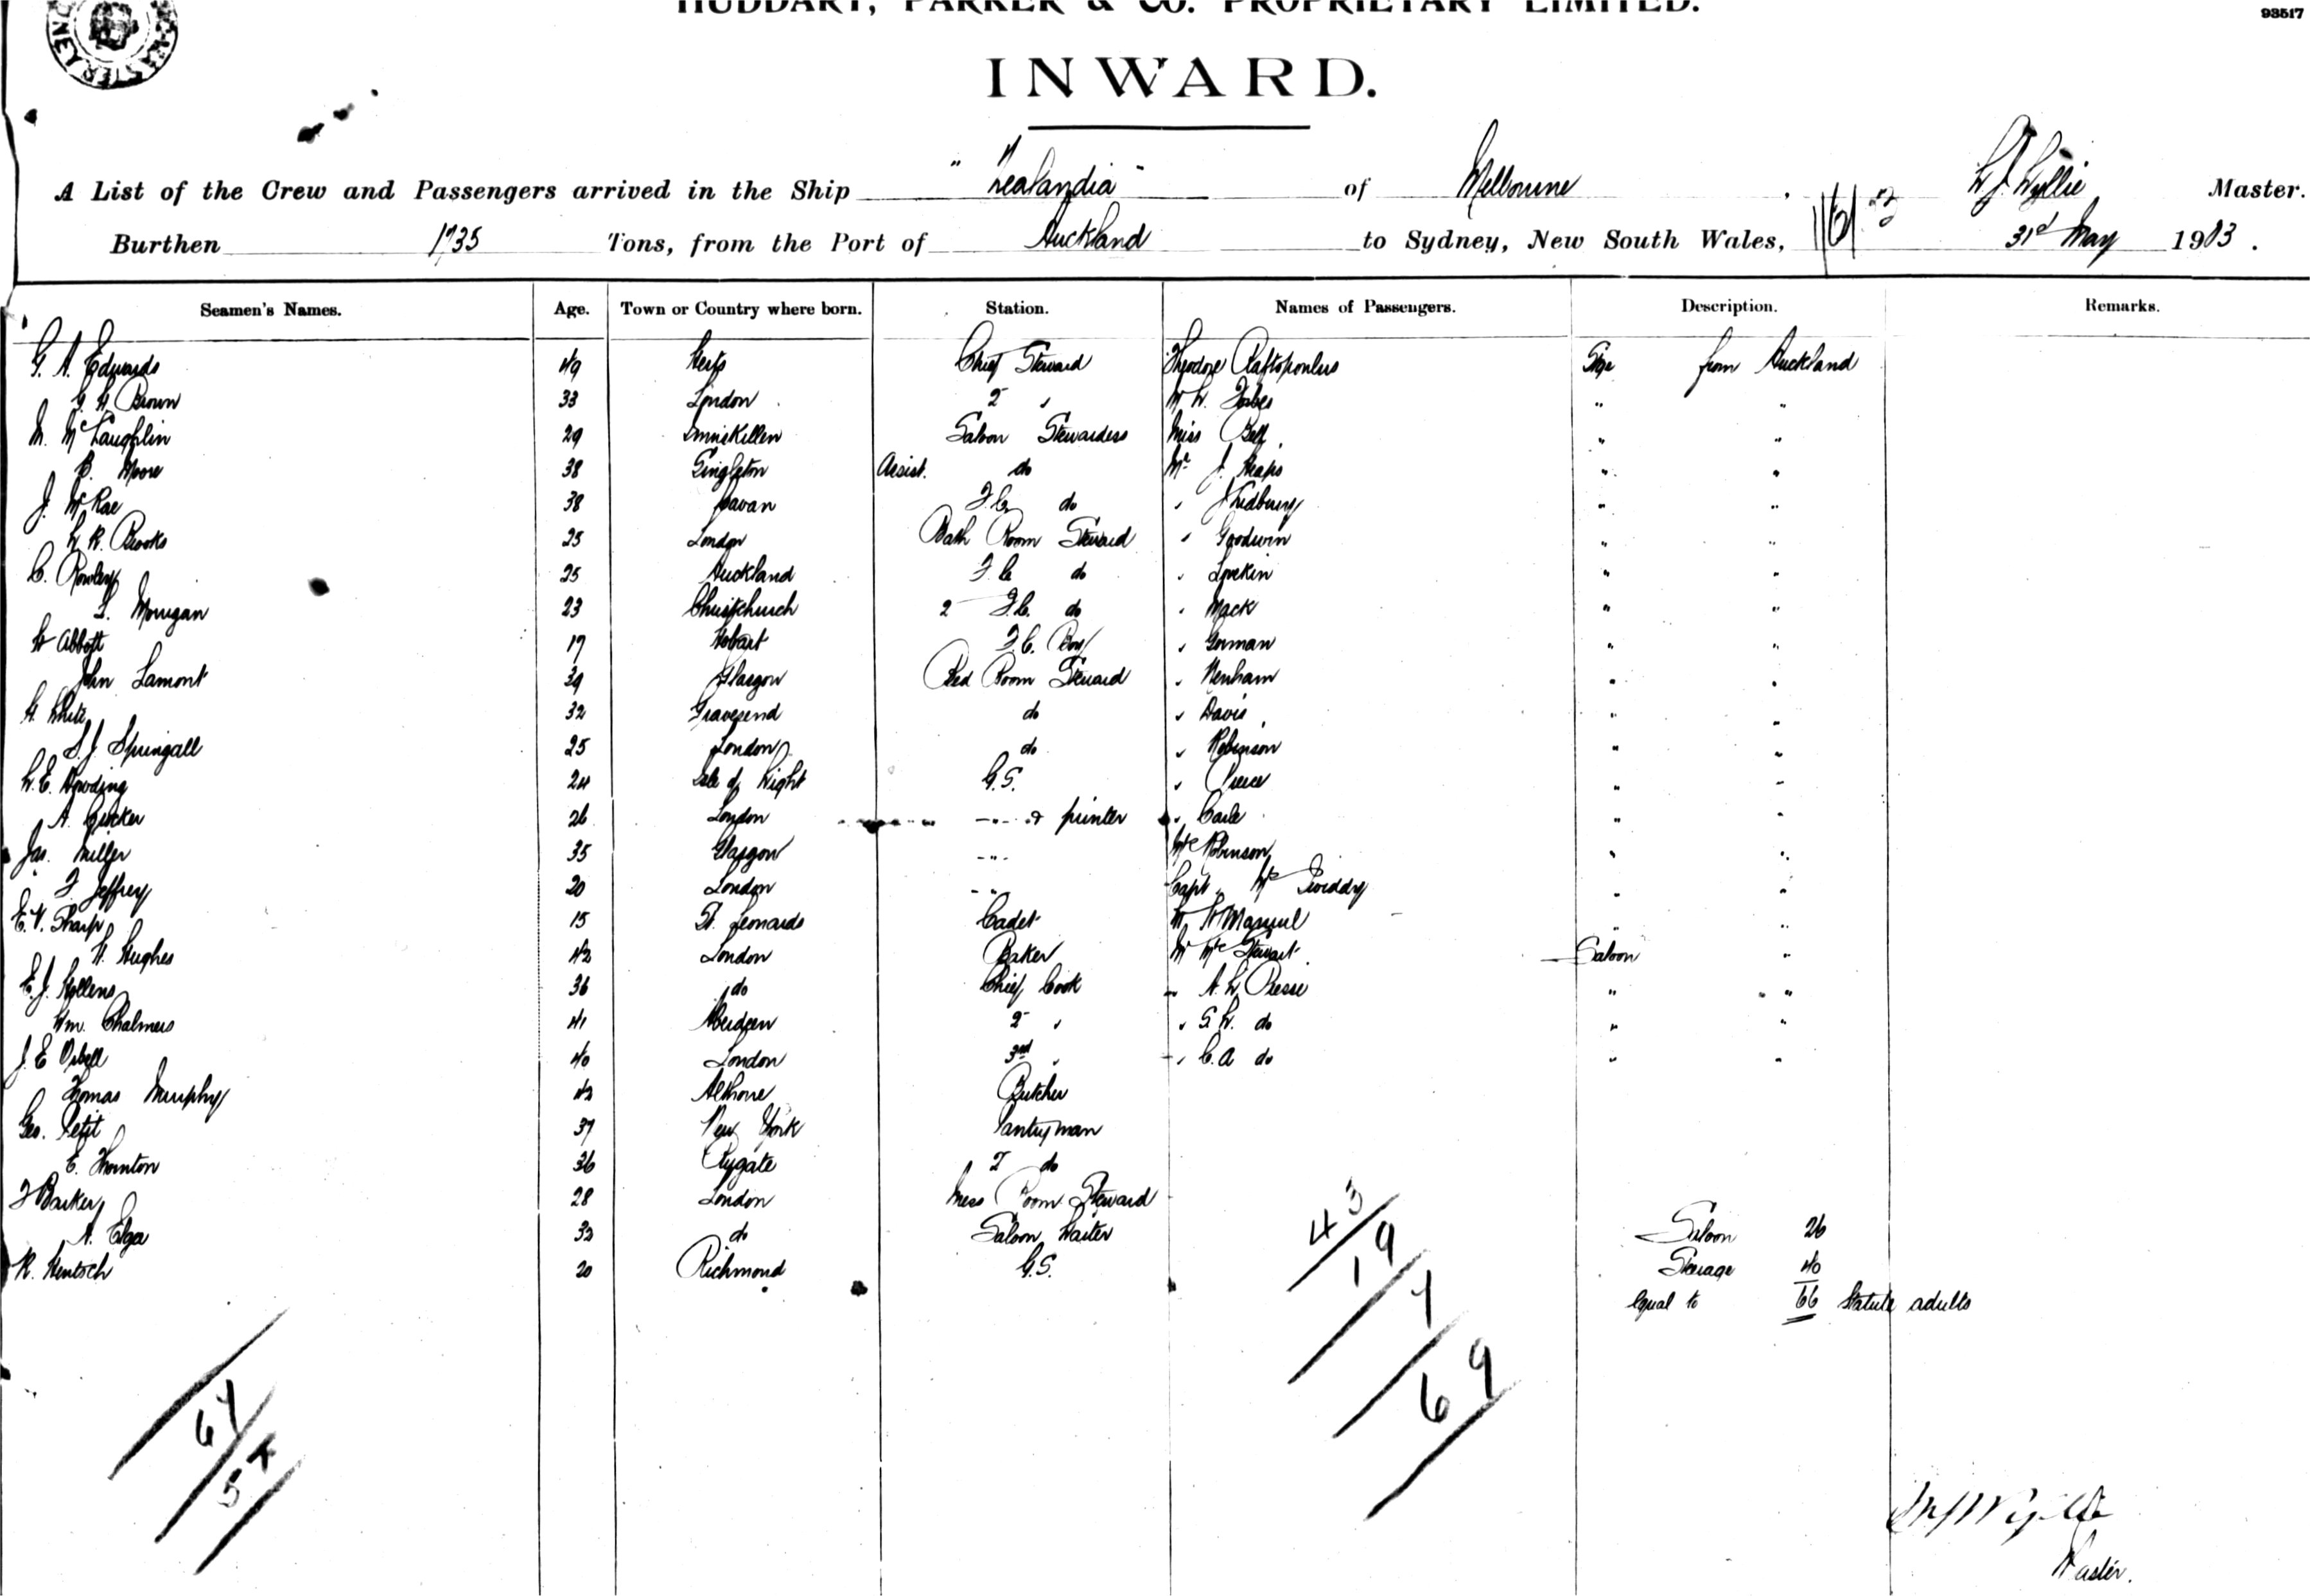 HUDDART, PARKER & CO. PROPRIETARY LIMITED.
93517
INWARD.
A List of the Crew and Passengers arrived in the Ship "Zealandia" of Melbourne, W. J. Wyllie Master.
Burthen 1735 Tons, from the Port of Auckland to Sydney, New South Wales, 31st May 1903.
Seamen's Names. Age. Town or Country where born. Station. Names of Passengers. Description. Remarks.
G. A. Edwards 49 Chief Steward Theodore Raftopoulus Stge from Auckland
G. H. Brown 33 London 2 " Mr W. Forbes " "
M. McLaughlin 29 Inniskillen Saloon Stewardess Miss Bell " "
B. Moore 38 Singleton Assist. do Mr J. Heaps " "
J. McRae 38 Cavan F.C. do " " "
W. R. Brooks 25 London Bath Room Steward " Goodwin " "
C. Rowley 25 Auckland F.C. do " Lovekin " "
Morrigan 23 Christchurch 2 F.C. do " Mack " "
H Abbott 17 Hobart F.C. Boy " Gorman " "
John Lamont 39 Glasgow Bed Room Steward " Henham " "
H. White 32 Gravesend do " Davis " "
S. J. Springall 25 London do " Robinson " "
W. E. Dowding 24 Isle of Wight G.S. " Pierce " "
A. 26 London -"- & printer " Carle " "
Jas. Miller 35 Glasgow -"- Mrs Robinson " "
F. Jeffrey 20 London -"- Capt " Mrs " "
E. V. Sharp 15 St. Leonards Cadet Mr " "
H. Hughes 42 London Baker Mr Mrs Stewart Saloon "
E. J. Hollens 36 do Chief Cook " A. W. " "
Wm. Chalmers 41 Aberdeen 2 " " S. W. do " "
J. E. 40 London 3rd " " C. A do " "
Thomas Murphy 42 Athlone Butcher
Geo. Petit 37 New York Pantryman
E. Thornton 36 2 do
F Barker 28 London Mess Room Steward
A. Elga 32 do Saloon Waiter Saloon 26
R. Hentsch 20 Richmond G.S. Steerage 40
Equal to 66 Statute adults
43
19
7
69
67
5
Master.